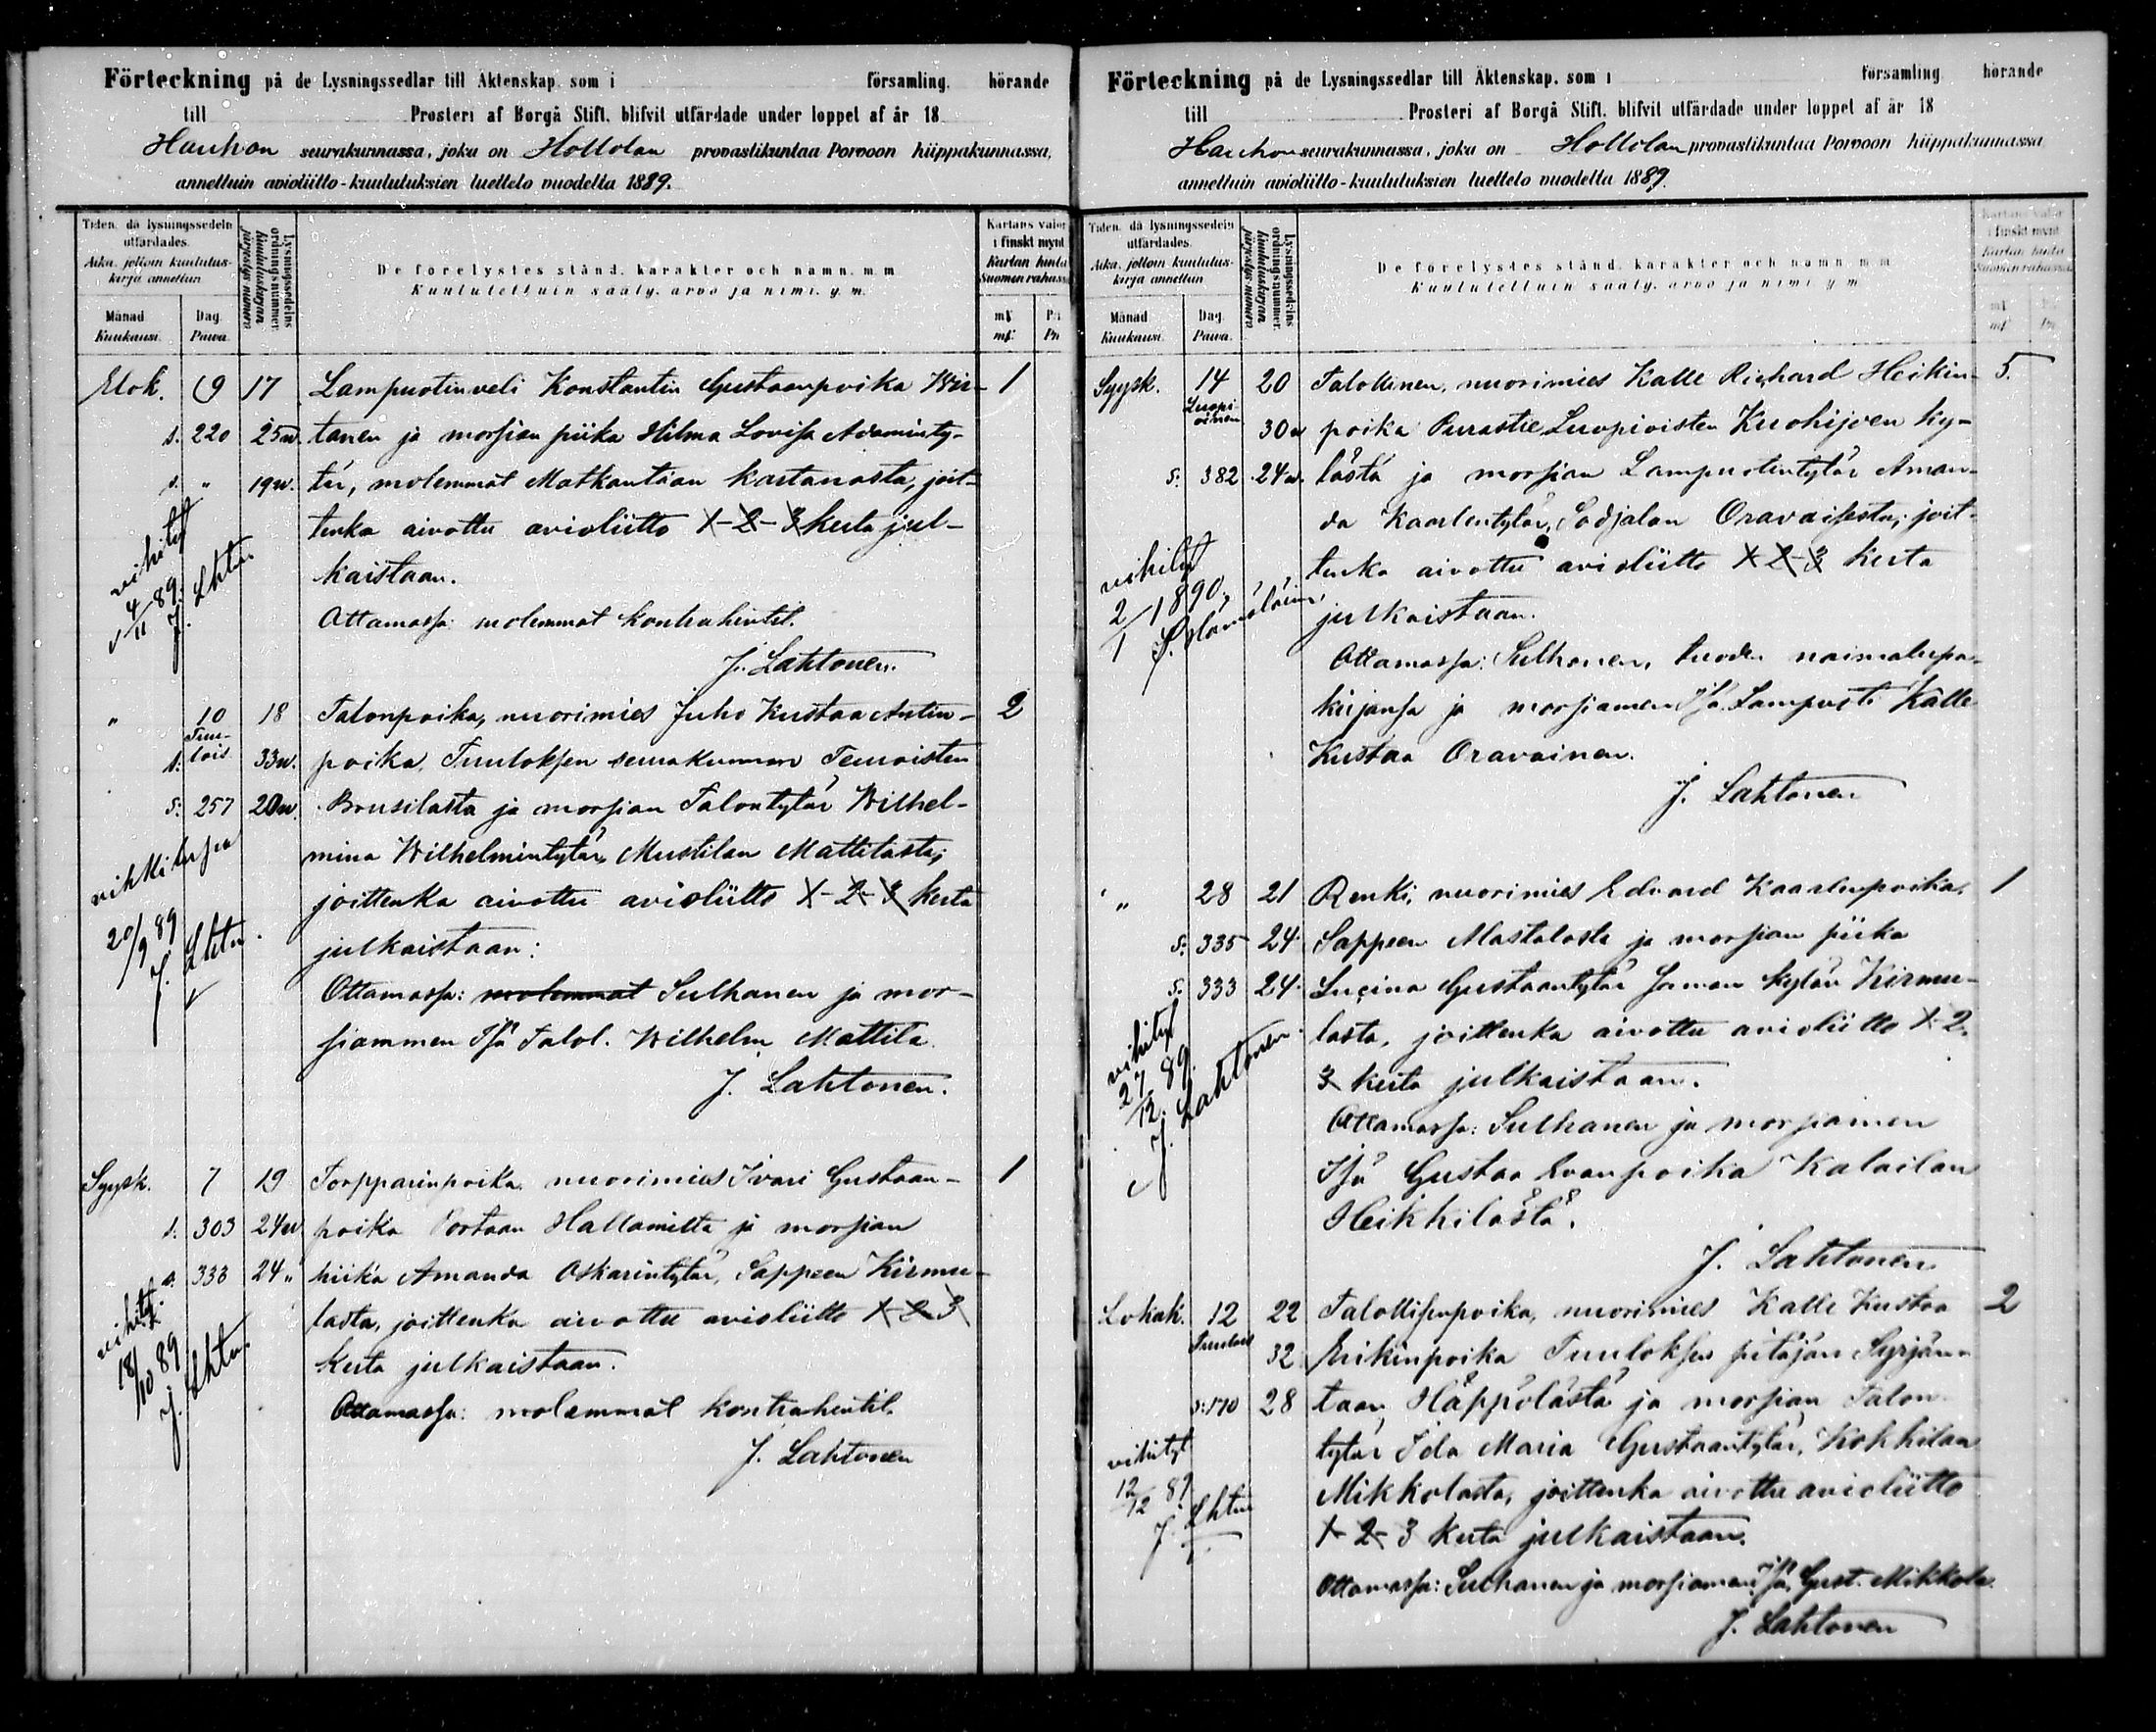 Förteckning på de Lysningssedlar till Äktenskap. som i församling. hörande
till Prosteri af Borgå Stift. blifvit utfärdade under loppet af år 18
Hauhon seurakunnassa, joka on Hollolan provastikuntaa Porvoon hiippakunnassa,
annettuin avioliitto-kuulutuksien luettelo vuodelta 1889.
Tiden, då lysningssedeln utfärdades.
Aika, jolloin kuulutuskirja annettiin
Lysningssedelns ordningsnummer.
Kuulutuskirjan järjestys-numero
De förelystes stånd. karakter och namn. m. m
Kuulutettuin sääty. arvo ja nimi. y. m.
Kartans valör i finskt mynt
Kartan hinta Suomen rahassa
Månad Kuukausi. Dag. Päivä. mk mk. Pi Pn
Elok. 9 17 Lampuotinveli Konstantin Gustaanpoika Wir- 1
s. 220 25 w. tanen ja morsian piika Hilma Lovisa Adaminty-
s. " 19 w. tär, molemmat Matkantaan kartanosta, joit-
tenka aivottu avioliitto 1-2-3 kerta jul-
kaistaan.
vihityt 4/11 89. J. Lhtn
Ottamassa: molemmat kontrahentit.
J. Lahtonen.
" 10 18 Talonpoika, nuorimies Juho Kustaa Antin- 2
s. Tuulois 33 w. poika, Tuuloksen seurakunnan Teuroisten
s: 257 20 w. Brusilasta ja morsian Talontytär Wilhel-
mina Wilhelmintytär, Mustilan Mattilasta;
vihkilupa 20/9 89 J. Lhtn.
joittenka aivottu avioliitto 1-2-3 kerta
julkaistaan:
Ottamassa: molemmat Sulhanen ja mor-
siammen Isä Talol. Wilhelm Mattila
J. Lahtonen.
Syysk. 7 19 Torpparinpoika nuorimies Ivari Gustaan- 1
s. 303 24 w poika Portaan Hallamilta ja morsian
s. 333 24 " piika Amanda Oskarintytär, Sappeen Kirmu-
lasta, joittenka aivottu avioliitto 1-2-3
kerta julkaistaan.
vihityt. 18/10 89 J. Lhtn.
Ottamassa: molemmat kontrahentit.
J. Lahtonen
Förteckning på de Lysningssedlar till Äktenskap. som i församling hörande
till Prosteri af Borgå Stift. blifvit utfärdade under loppet af år 18
Hauhon seurakunnassa, joka on Hollolan provastikuntaa Porvoon hiippakunnassa
annettuin avioliitto-kuulutuksien luettelo vuodelta 1889.
Tiden, då lysningssedeln utfärdades.
Aika, jolloin kuulutuskirja annettiin
Lysningssedelns ordningsnummer
Kuulutuskirjan järjestys-numero
De förelystes stånd. karakter och namn. m. m
Kuulutettuin sääty. arvo ja nimi y. m
Kartans valör i finskt mynt
Kartan hinta Suomen rahassa
Månad Kuukausi. Dag. Päivä. mk mk Pn
Syysk. 14 20 Talollinen, nuorimies Kalle Richard Heikin- 5.
Luopioinen 30 w poika Purastie Luopioisten Kuohijoen ky-
s: 382 24 w. lästä ja morsian Lampuotintytär Aman-
da Kaarlentytär, Sodjalan Oravaisesta, joit-
tenka aivottu avioliitto 1-2-3 kerta
julkaistaan.
vihityt 2/1 1890,
Ottamassa: Sulhanen, tuoden naimalupa-
kirjansa ja morsiamen Isä Lampuoti Kalle
Kustaa Oravainen.
J. Lahtonen
" 28 21 Renki, nuorimies Edvard Kaarlenpoika, 1
s: 335 24 Sappeen Mastalasta ja morsian piika
s: 333 24 Lucina Gustaantytär saman kylän Kirmu-
lasta, joittenka aivottu avioliitto 1-2.
3 kerta julkaistaan.
vihityt 27/12 89. J. Lahtonen
Ottamassa: Sulhanen ja morsiamen
Isä Gustaa Evanpoika Kalailan
Heikkilästä.
J. Lahtonen
Lokak. 12 22 Talollisenpoika, nuorimies Kalle Kustaa 2
Tuulois 32 Erikinpoika Tuuloksen pitäjän Syrjän-
s: 170 28 taan Häppölästä ja morsian Talon-
tytär Ida Maria Gustaantytär, Kokkilan
Mikkolasta, joittenka aivottu avioliitto
1-2-3 kerta julkaistaan.
vihityt 12/12 89 J. Lhtn
Ottamassa: Sulhanen ja morsiamen Isä, Gust. Mikkola.
J. Lahtonen